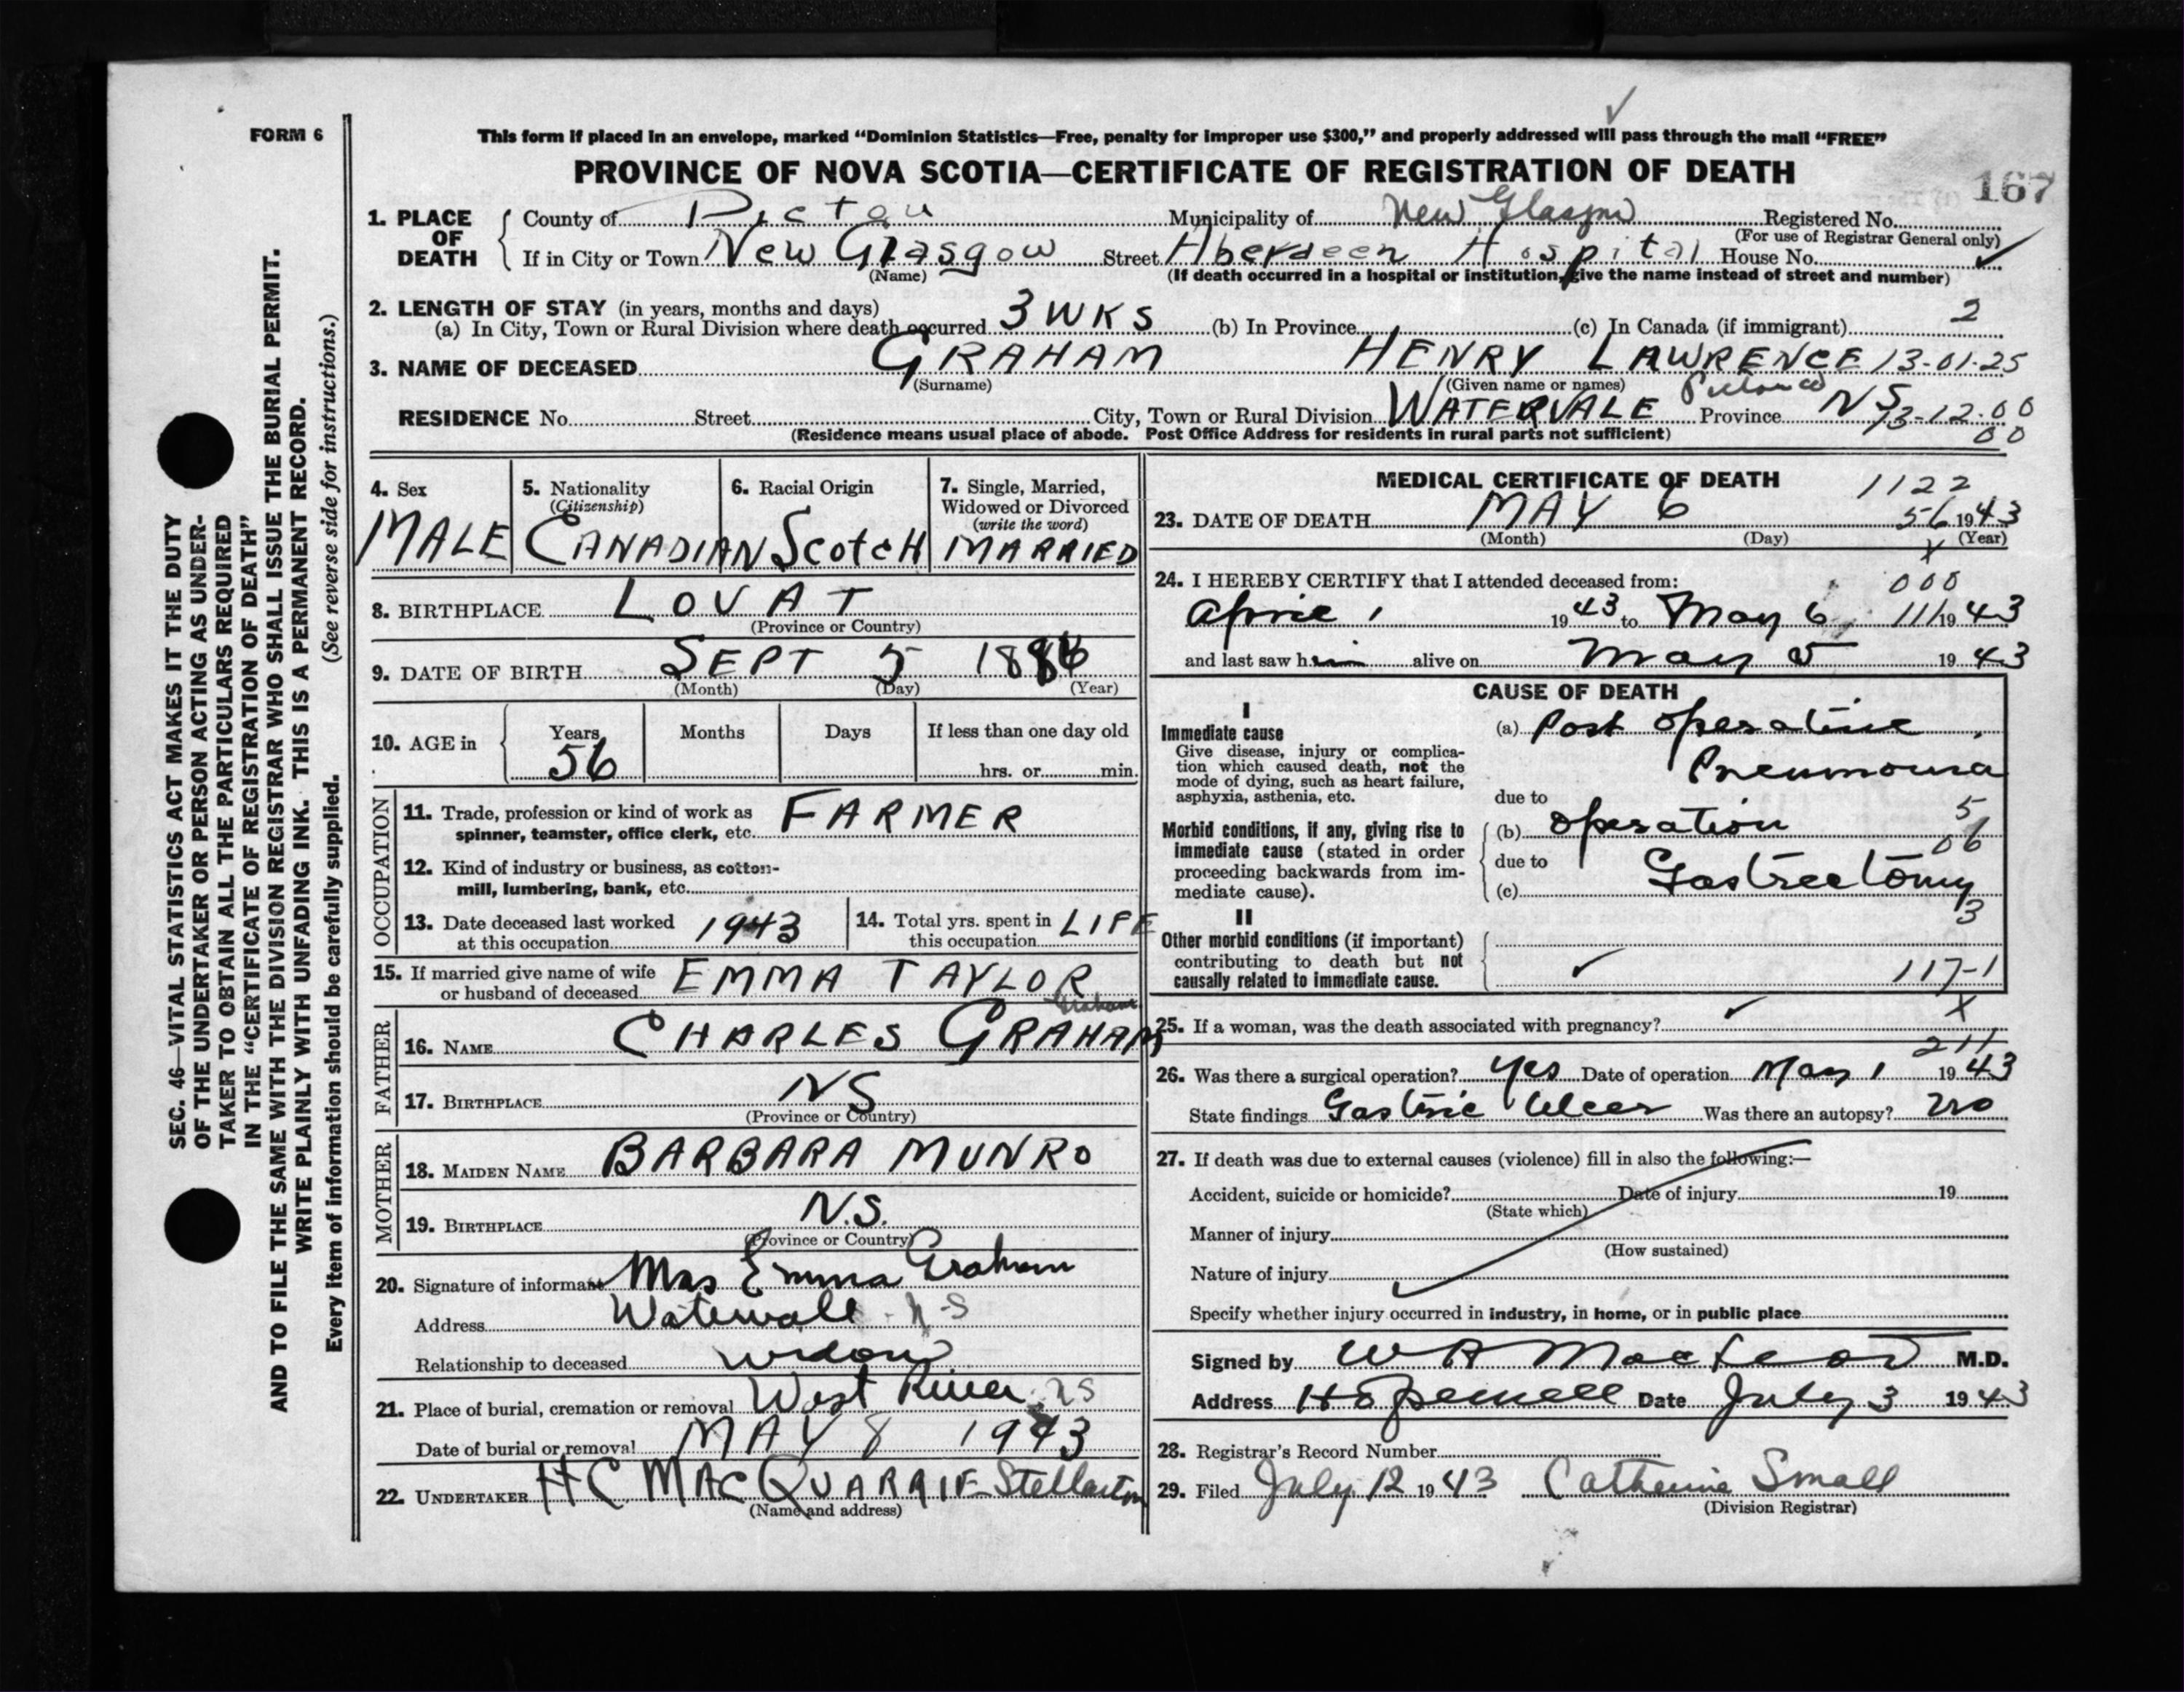 FORM 6
This form if placed in an envelope, marked “Dominion Statistics—Free, penalty for improper use $300,” and properly addressed will pass through the mail “FREE”
PROVINCE OF NOVA SCOTIA—CERTIFICATE OF REGISTRATION OF DEATH
167
1. PLACE OF DEATH
County of Pictou Municipality of New Glasgow Registered No.
(For use of Registrar General only)
If in City or Town New Glasgow Street Aberdeen Hospital House No.
(Name) (If death occurred in a hospital or institution, give the name instead of street and number)
2. LENGTH OF STAY (in years, months and days)
(a) In City, Town or Rural Division where death occurred 3 WKS (b) In Province (c) In Canada (if immigrant) 2
3. NAME OF DECEASED GRAHAM HENRY LAWRENCE 13-01-25
(Surname) (Given name or names)
RESIDENCE No. Street City, Town or Rural Division WATERVALE Pictou Co Province NS 13-12-00
(Residence means usual place of abode. Post Office Address for residents in rural parts not sufficient) 00
SEC. 46—VITAL STATISTICS ACT MAKES IT THE DUTY
OF THE UNDERTAKER OR PERSON ACTING AS UNDER-
TAKER TO OBTAIN ALL THE PARTICULARS REQUIRED
IN THE “CERTIFICATE OF REGISTRATION OF DEATH”
AND TO FILE THE SAME WITH THE DIVISION REGISTRAR WHO SHALL ISSUE THE BURIAL PERMIT.
WRITE PLAINLY WITH UNFADING INK. THIS IS A PERMANENT RECORD.
Every item of information should be carefully supplied. (See reverse side for instructions.)
4. Sex
MALE
5. Nationality
(Citizenship)
CANADIAN
6. Racial Origin
SCOTCH
7. Single, Married,
Widowed or Divorced
(write the word)
MARRIED
8. BIRTHPLACE LOVAT
(Province or Country)
9. DATE OF BIRTH SEPT 5 1886
(Month) (Day) (Year)
10. AGE in
Years Months Days If less than one day old
56 hrs. or min.
OCCUPATION
11. Trade, profession or kind of work as
spinner, teamster, office clerk, etc. FARMER
12. Kind of industry or business, as cotton-
mill, lumbering, bank, etc.
13. Date deceased last worked
at this occupation 1943
14. Total yrs. spent in
this occupation LIFE
15. If married give name of wife
or husband of deceased EMMA TAYLOR
Graham
FATHER
16. NAME CHARLES GRAHAM
17. BIRTHPLACE NS
(Province or Country)
MOTHER
18. MAIDEN NAME BARBARA MUNRO
19. BIRTHPLACE N.S.
(Province or Country)
20. Signature of informant Mrs Emma Graham
Address Watervale - N-S
Relationship to deceased widow
21. Place of burial, cremation or removal West River NS
Date of burial or removal MAY 8 1943
22. UNDERTAKER H C MACQUARRIE Stellarton
(Name and address)
MEDICAL CERTIFICATE OF DEATH 1122
23. DATE OF DEATH MAY 6 56 1943
(Month) (Day) (Year)
X
24. I HEREBY CERTIFY that I attended deceased from: 000
April 1 1943 to May 6 111 1943
and last saw him alive on May 5 1943
CAUSE OF DEATH
I
Immediate cause
Give disease, injury or complica-
tion which caused death, not the
mode of dying, such as heart failure,
asphyxia, asthenia, etc.
(a) Post operative
Pneumonia
due to
Morbid conditions, if any, giving rise to
immediate cause (stated in order
proceeding backwards from im-
mediate cause).
(b) operation 5
06
due to
(c) Gastrectomy
3
II
Other morbid conditions (if important)
contributing to death but not
causally related to immediate cause.
117-1
25. If a woman, was the death associated with pregnancy? X
211
26. Was there a surgical operation? Yes Date of operation May 1 1943
State findings Gastric Ulcer Was there an autopsy? no
27. If death was due to external causes (violence) fill in also the following:—
Accident, suicide or homicide? Date of injury 19
(State which)
Manner of injury
(How sustained)
Nature of injury
Specify whether injury occurred in industry, in home, or in public place
Signed by W A MacLeod M.D.
Address Hopewell Date July 3 1943
28. Registrar’s Record Number
29. Filed July 12 1943 Catherine Small
(Division Registrar)